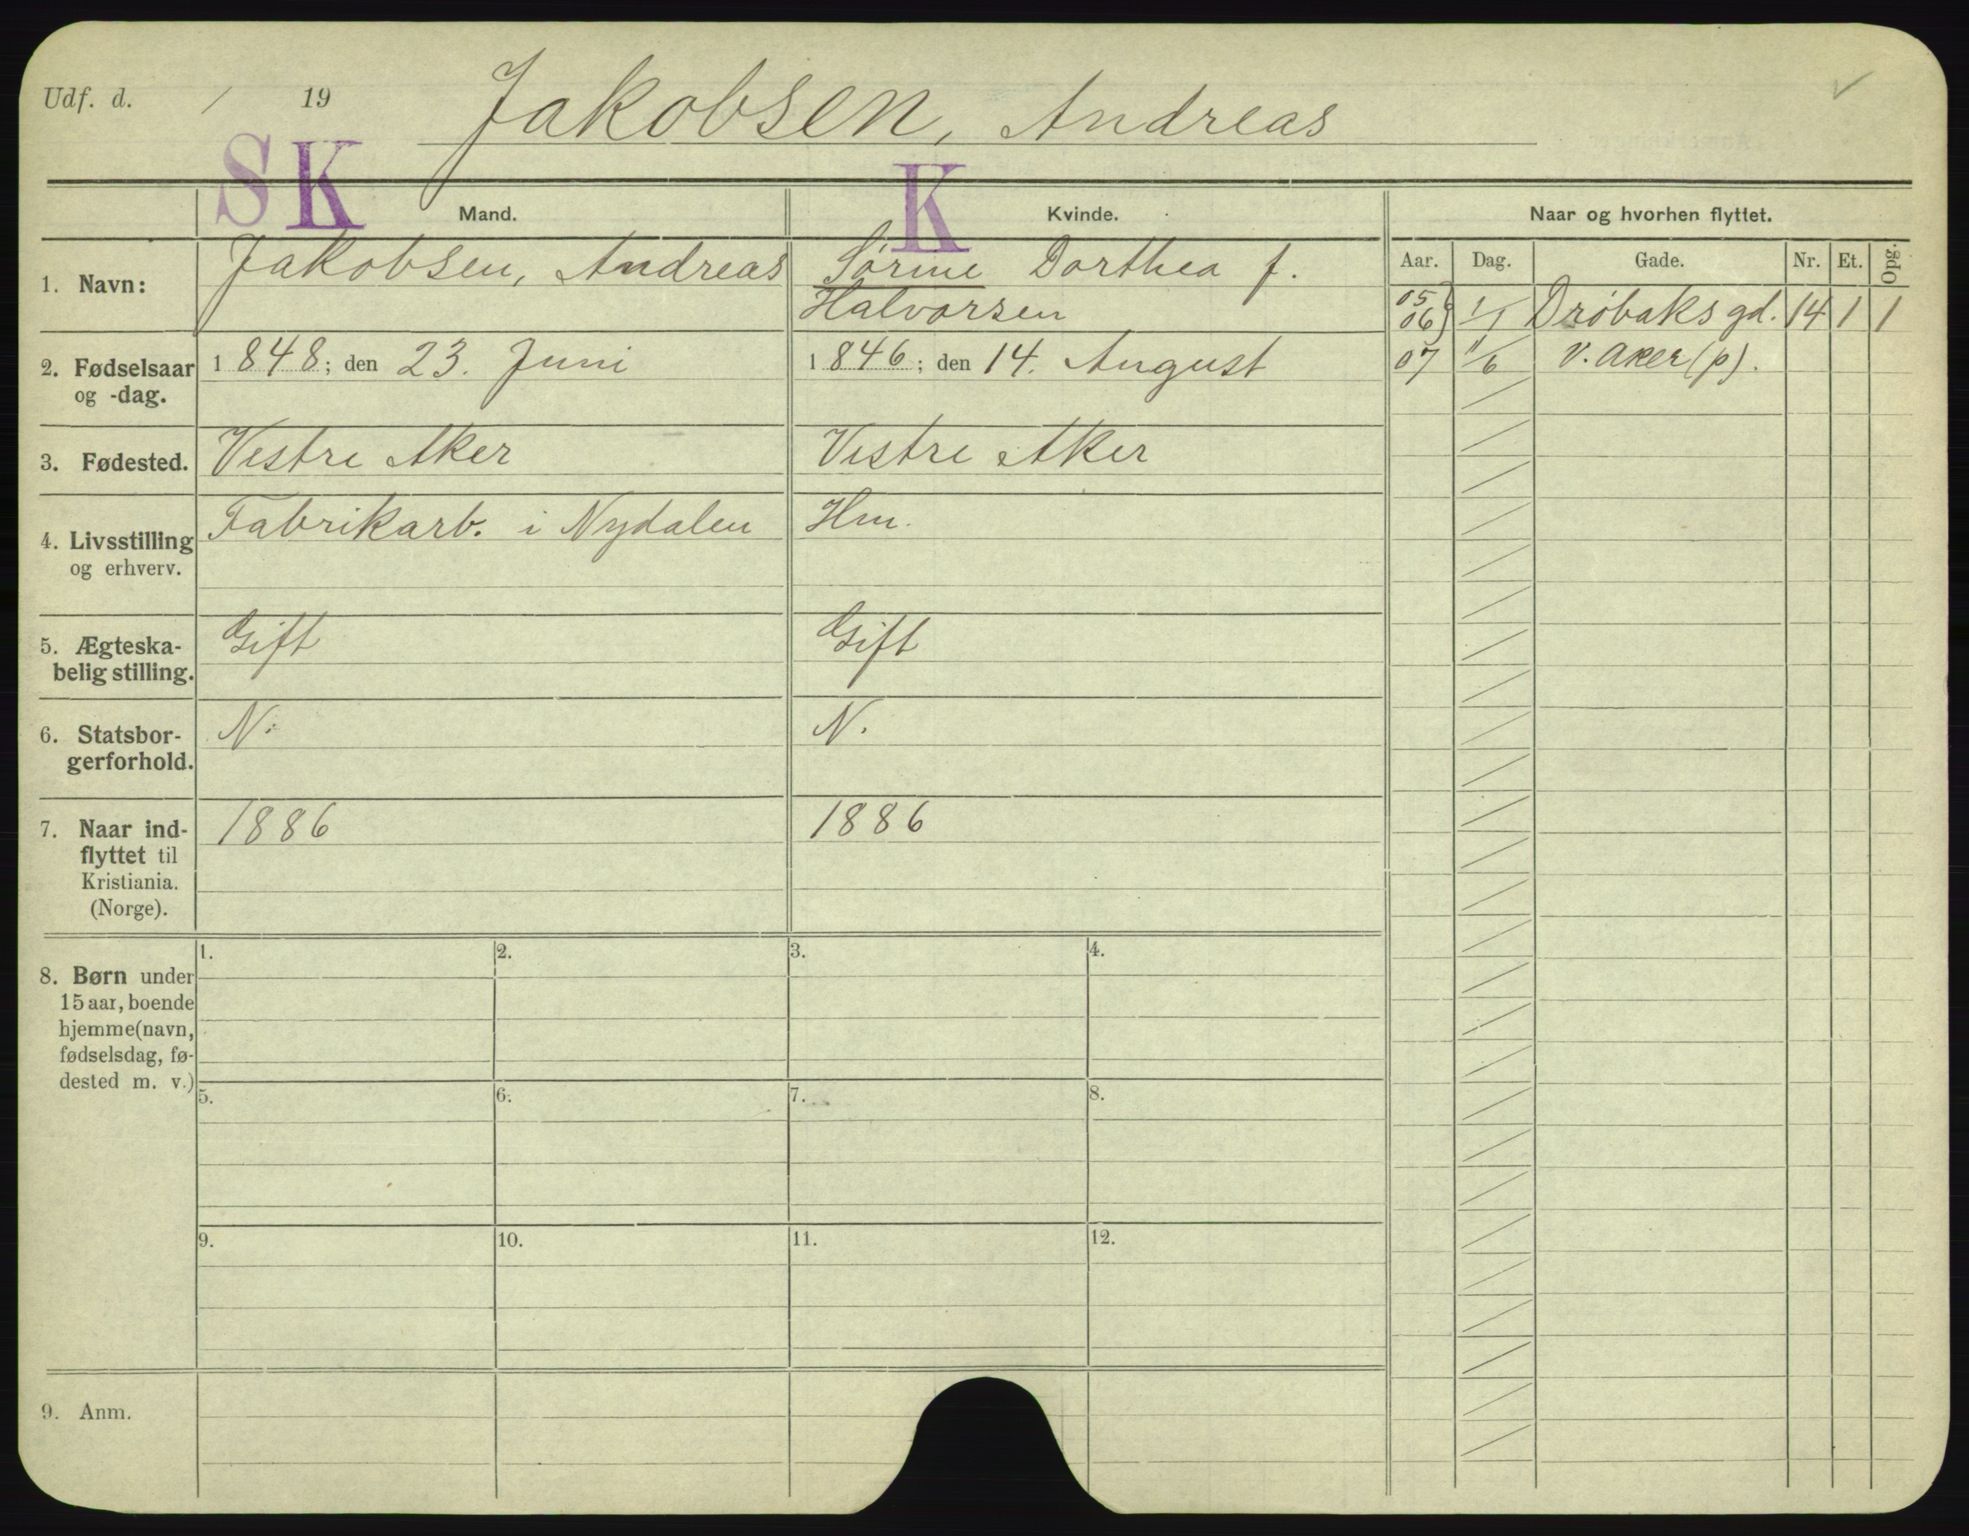 Udf. d. / 19
Jakobsen, Andreas
SK
K
Mand.
Kvinde.
Naar og hvorhen flyttet.
Aar. Dag. Gade. Nr. Et. Opg.
1. Navn:
Jakobsen, Andreas
Dorthea f.
Halvorsen
05
06 } 1/1 Drøbaksgd. 14 1 1
07 1/6 V. Aker (p).
2. Fødselsaar
og -dag.
1848; den 23. Juni
1846; den 14. August
3. Fødested.
Vestre Aker
Vestre Aker
4. Livsstilling
og erhverv.
Fabrikarb. i Nydalen
Hm.
5. Ægteska-
belig stilling.
Gift
Gift
6. Statsbor-
gerforhold.
N.
N.
7. Naar ind-
flyttet til
Kristiania.
(Norge).
1886
1886
8. Børn under
15 aar, boende
hjemme (navn,
fødselsdag, fø-
dested m. v.)
1. 2. 3. 4.
5. 6. 7. 8.
9. 10. 11. 12.
9. Anm.